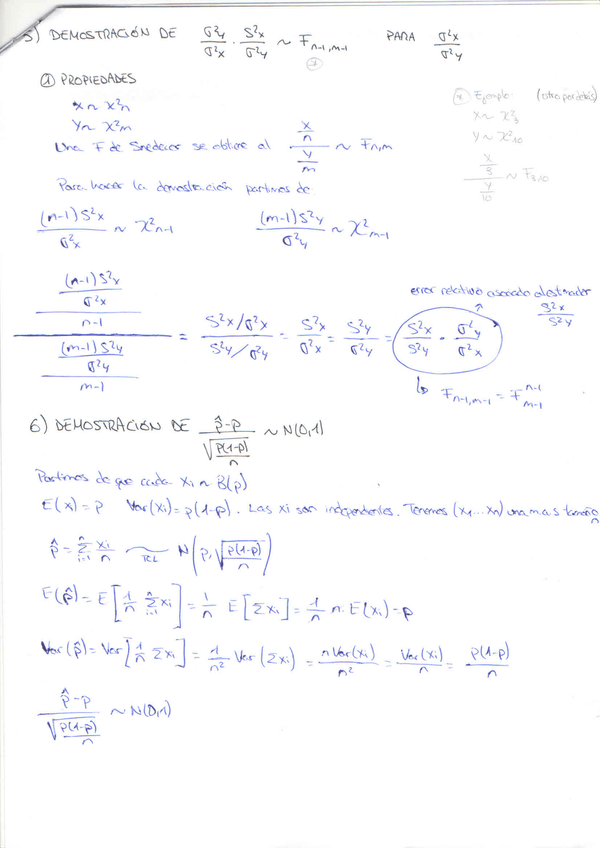 5) DEMOSTRACIÓN DE σ²y/σ²x · S²x/S²y ~ F n-1, m-1 PARA σ²x/σ²y
① PROPIEDADES
X ~ χ²n
Y ~ χ²m
Una F de Snedecor se obtiene al (X/n)/(Y/m) ~ Fn,m
* Ejemplo: (otro per detis)
X ~ χ²3
Y ~ χ²10
(X/3)/(Y/10) ~ F3,10
Para hacer la demostración partimos de
(n-1)S²x/σ²x ~ χ²n-1 (m-1)S²y/σ²y ~ χ²m-1
(((n-1)S²x/σ²x)/(n-1))/(((m-1)S²y/σ²y)/(m-1)) = (S²x/σ²x)/(S²y/σ²y) = S²x/σ²x = S²y/σ²y = S²x/S²y · σ²y/σ²x
error relativo asociado al estimador S²x/S²y
↳ F n-1, m-1 = F n-1 m-1
6) DEMOSTRACIÓN DE (p̂-p)/√(p(1-p)/n) ~ N(0,1)
Partimos de que cada Xi ~ B(p)
E(x) = p Var(Xi) = p(1-p). Las Xi son independientes. Tenemos (X1...Xn) una m.a.s tamaño n
p̂ = Σⁿi=1 Xi/n ~ TCL N(p, √(p(1-p)/n))
E(p̂) = E[1/n Σⁿi=1 Xi] = 1/n E[ΣXi] = 1/n n·E(Xi) = p
Var(p̂) = Var[1/n ΣXi] = 1/n² Var(ΣXi) = nVar(Xi)/n² = Var(Xi)/n = p(1-p)/n
(p̂-p)/√(p(1-p)/n) ~ N(0,1)